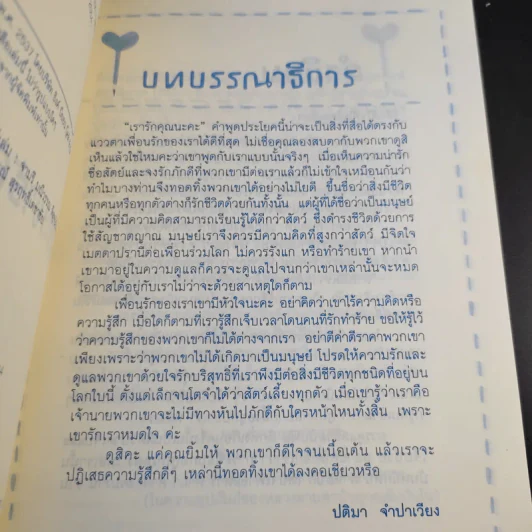 บทบรรณาธิการ
"เรารักคุณนะคะ" คำพูดประโยคนี้น่าจะเป็นสิ่งที่สื่อได้ตรงกับ
แววตาเพื่อนรักของเราได้ดีที่สุด ไม่เชื่อคุณลองสบตากับพวกเขาดูสิ
เห็นแล้วใช่ไหมคะว่าเขาพูดกับเราแบบนั้นจริงๆ เมื่อเห็นความน่ารัก
ซื่อสัตย์และจงรักภักดีที่พวกเขามีต่อเราแล้วก็ไม่เข้าใจเหมือนกันว่า
ทำไมบางท่านจึงทอดทิ้งพวกเขาได้อย่างไม่ไยดี ขึ้นชื่อว่าสิ่งมีชีวิต
ทุกคนหรือทุกตัวต่างก็รักชีวิตด้วยกันทั้งนั้น แต่ผู้ที่ได้ชื่อว่าเป็นมนุษย์
เป็นผู้ที่มีความคิดสามารถเรียนรู้ได้ดีกว่าสัตว์ ซึ่งดำรงชีวิตด้วยการ
ใช้สัญชาตญาณ มนุษย์เราจึงควรมีความคิดที่สูงกว่าสัตว์ มีจิตใจ
เมตตาปรานีต่อเพื่อนร่วมโลก ไม่ควรรังแก หรือทำร้ายเขา หากนำ
เขามาอยู่ในความดูแลก็ควรจะดูแลไปจนกว่าเขาเหล่านั้นจะหมด
โอกาสได้อยู่กับเราไม่ว่าจะด้วยสาเหตุใดก็ตาม
เพื่อนรักของเราเขามีหัวใจนะคะ อย่าคิดว่าเขาไร้ความคิดหรือ
ความรู้สึก เมื่อใดก็ตามที่เรารู้สึกเจ็บเวลาโดนคนที่รักทำร้าย ขอให้รู้ไว้
ว่าความรู้สึกของพวกเขาก็ไม่ได้ต่างจากเรา อย่าตีค่าตีราคาพวกเขา
เพียงเพราะว่าพวกเขาไม่ได้เกิดมาเป็นมนุษย์ โปรดให้ความรักและ
ดูแลพวกเขาด้วยใจรักบริสุทธิ์ที่เราพึงมีต่อสิ่งมีชีวิตทุกชนิดที่อยู่บน
โลกใบนี้ ตั้งแต่เล็กจนโตจำได้ว่าสัตว์เลี้ยงทุกตัว เมื่อเขารู้ว่าเราคือ
เจ้านายพวกเขาจะไม่มีทางหันไปภักดีกับใครหน้าไหนทั้งสิ้น เพราะ
เขารักเราหมดใจ ค่ะ
ดูสิคะ แค่คุณยิ้มให้ พวกเขาก็ดีใจจนเนื้อเต้น แล้วเราจะ
ปฏิเสธความรู้สึกดีๆ เหล่านี้ทอดทิ้งเขาได้ลงคอเชียวหรือ
ปดิมา จำปาเวียง